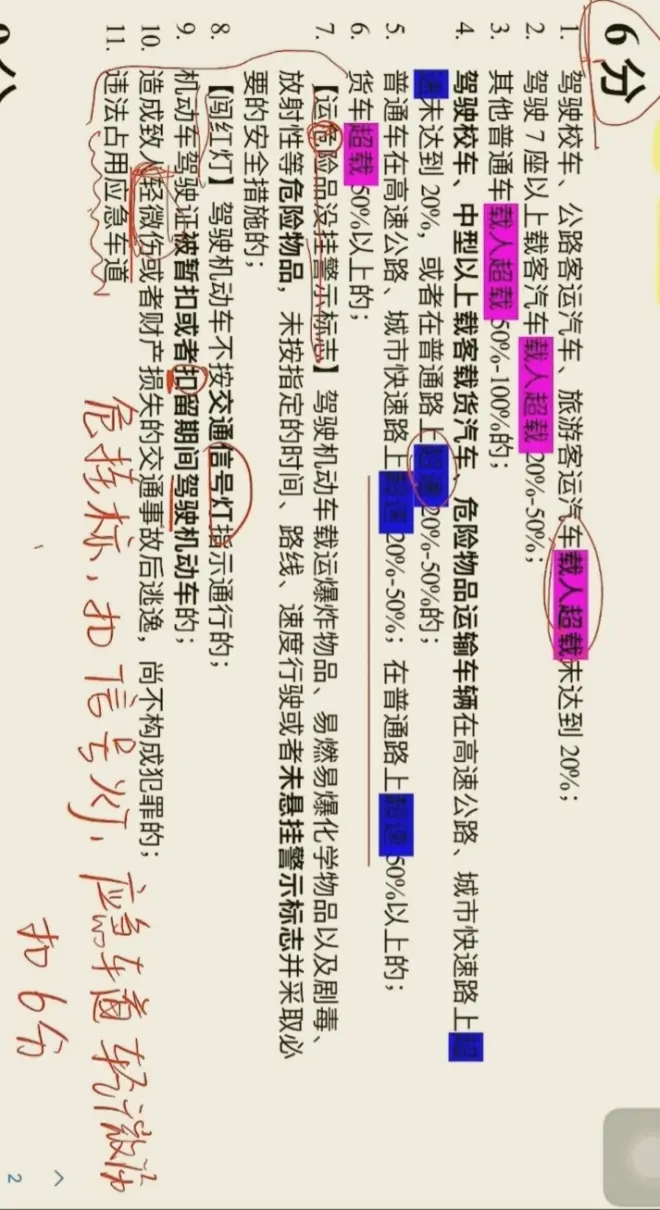 6分
1. 驾驶校车、公路客运汽车、旅游客运汽车载人超载未达到 20%；
2. 驾驶 7 座以上载客汽车载人超载 20%-50%；
3. 其他普通车载人超载 50%-100%的；
4. 驾驶校车、中型以上载客载货汽车、危险物品运输车辆在高速公路、城市快速路上超
速未达到 20%，或者在普通路上超速 20%-50%的；
5. 普通车在高速公路、城市快速路上超速 20%-50%；在普通路上超速 50%以上的；
6. 货车超载 50%以上的；
7. 【运危险品没挂警示标志】驾驶机动车载运爆炸物品、易燃易爆化学物品以及剧毒、
放射性等危险物品，未按指定的时间、路线、速度行驶或者未悬挂警示标志并采取必
要的安全措施的；
8. 【闯红灯】驾驶机动车不按交通信号灯指示通行的；
9. 机动车驾驶证被暂扣或者扣留期间驾驶机动车的；
10. 造成致人轻微伤或者财产损失的交通事故后逃逸，尚不构成犯罪的；
11. 违法占用应急车道
危挂标，扣信号灯，应急车道轻微伤
扣6分
2